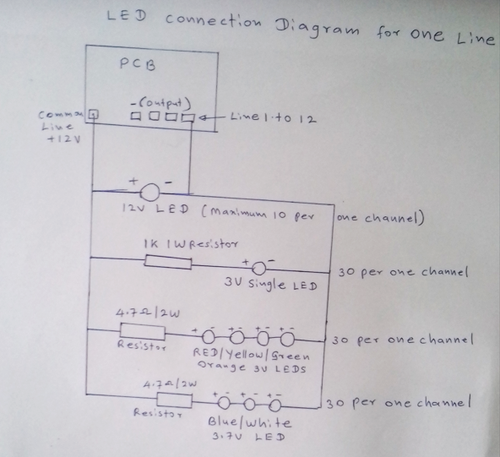 LED connection Diagram for one Line
PCB
-(output)
Common Line +12V
Line 1 to 12
+ -
12V LED (maximum 10 per one channel)
1K 1W Resistor
+ -
3V Single LED
30 per one channel
4.7Ω/2W
Resistor
+ - + - + - + -
RED/Yellow/Green
Orange 3V LEDS
30 per one channel
4.7Ω/2W
Resistor
+ - + - + -
Blue/White
3.7V LED
30 per one channel